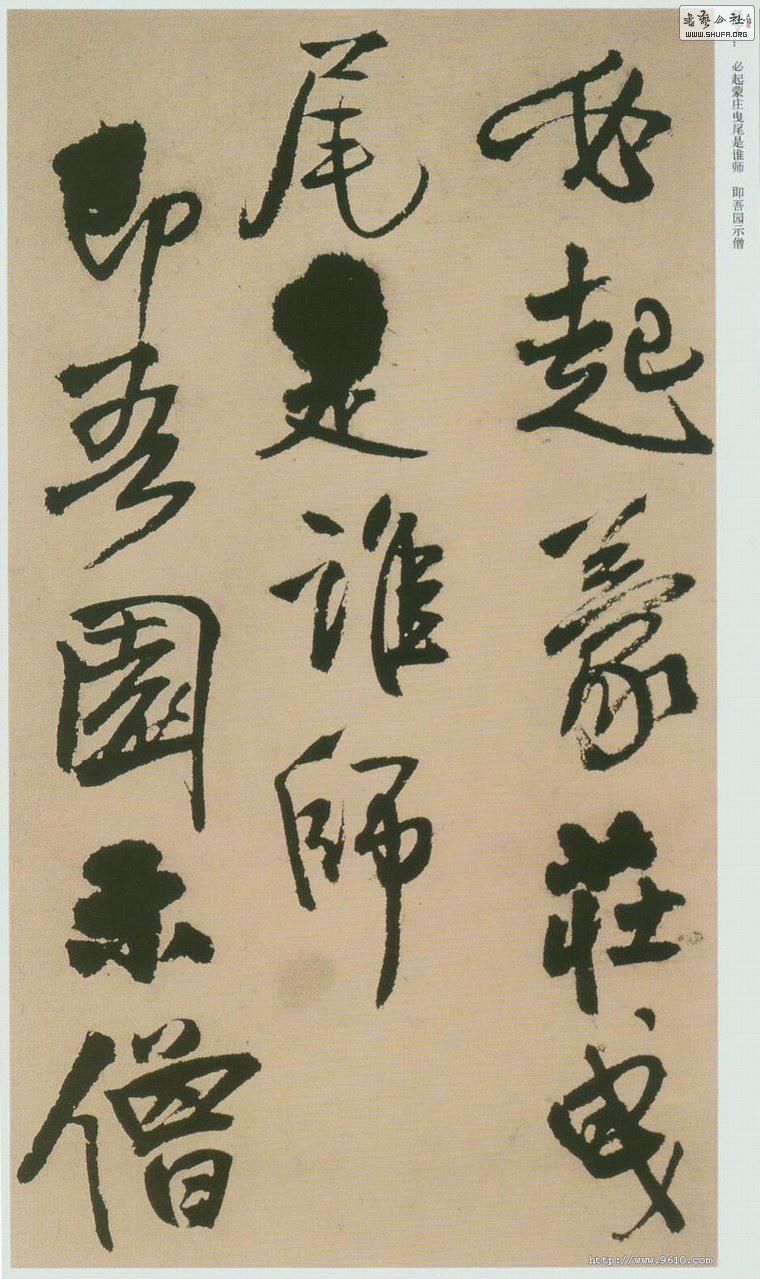 必起蒙莊曳
尾是谁師
即吾園示僧
必起蒙庄曳尾是谁师 即吾园示僧
書藝公社
WWW.SHUFA.ORG
http://www.9610.com